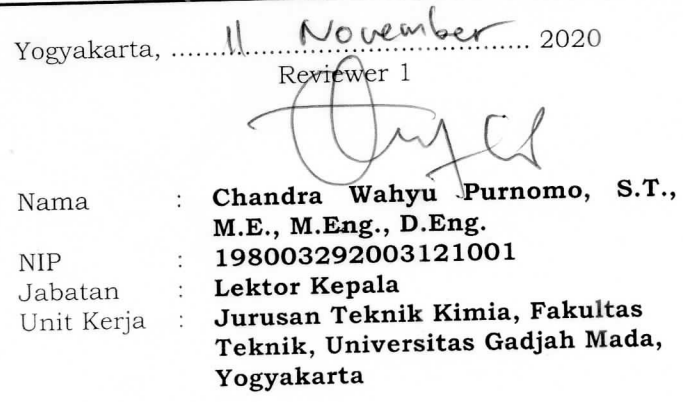 Yogyakarta, ........11 November........ 2020
Reviewer 1
Nama : Chandra Wahyu Purnomo, S.T.,
M.E., M.Eng., D.Eng.
NIP : 198003292003121001
Jabatan : Lektor Kepala
Unit Kerja : Jurusan Teknik Kimia, Fakultas
Teknik, Universitas Gadjah Mada,
Yogyakarta